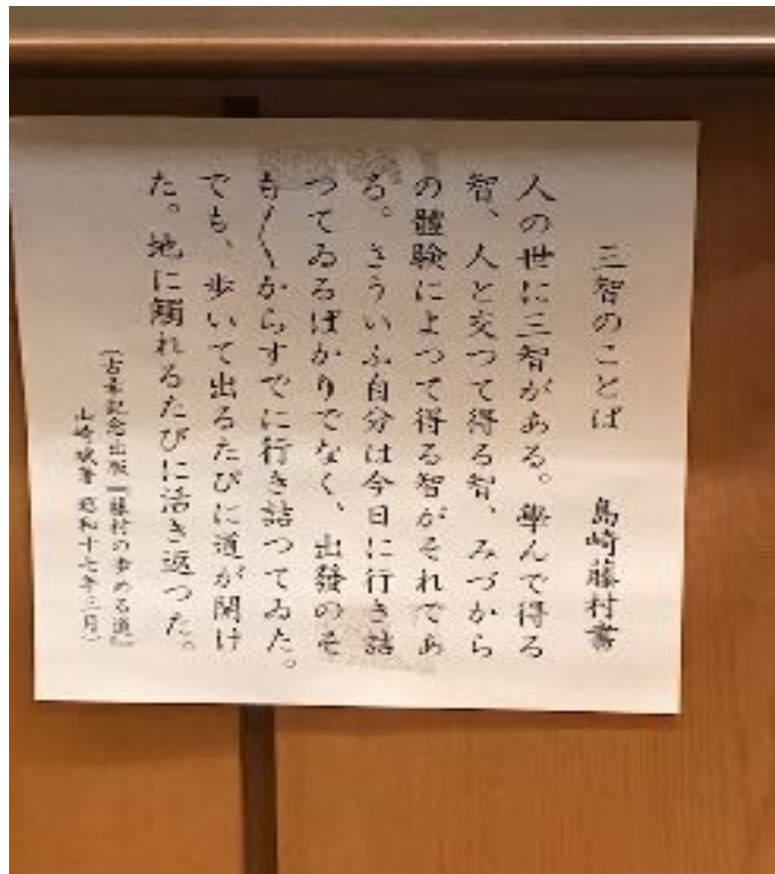 三智のことば　島崎藤村書
人の世に三智がある。學んで得る
智、人と交つて得る智、みづから
の體験によつて得る智がそれであ
る。さういふ自分は今日に行き詰
つてゐるばかりでなく、出發のそ
も〱からすでに行き詰つてゐた。
でも、歩いて出るたびに道が開け
た。地に觸れるたびに活き返つた。
記念出版『藤村の歩める道』
山崎斌著 昭和十七年三月）